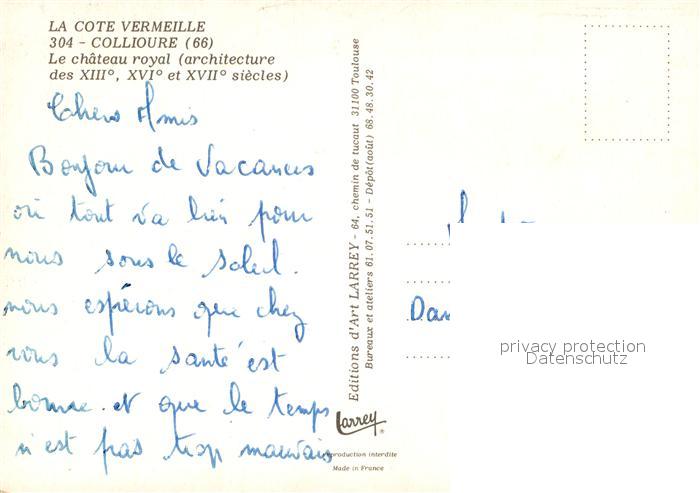 LA COTE VERMEILLE
304 - COLLIOURE (66)
Le château royal (architecture
des XIII°, XVI° et XVII° siècles)
Chers Amis
Bonjour de Vacances
où tout va bien pour
nous sous le soleil.
nous espérons que chez
vous la santé est
bonne et que le temps
n'est pas trop mauvais
Editions d'Art LARREY - 64, chemin de tucaut 31100 Toulouse
Bureaux et ateliers 61.07.51.51 - Dépôt (août) 68.48.30.42
Larrey
reproduction interdite
Made in France
privacy protection
Datenschutz